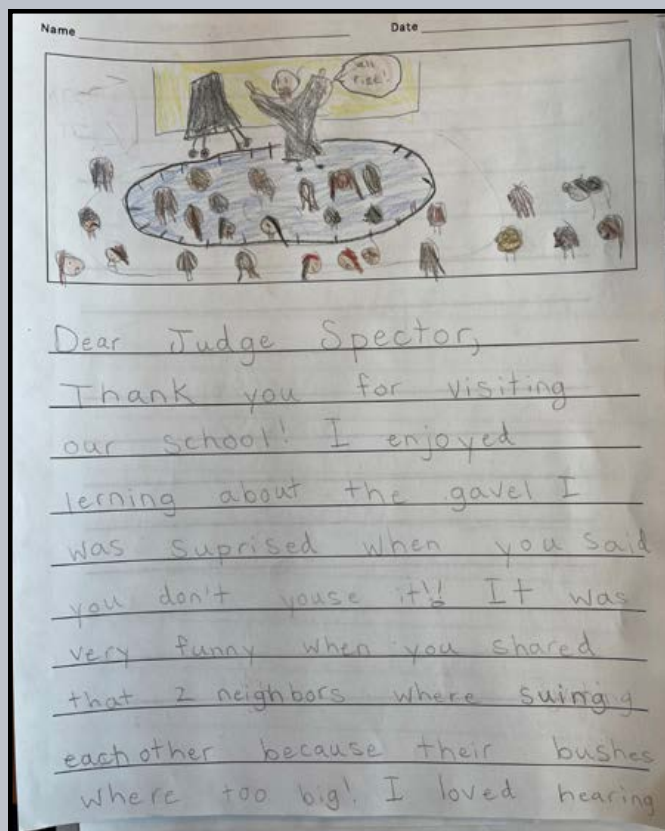 Name Date
all rise!
Dear Judge Spector,
Thank you for visiting
our school! I enjoyed
lerning about the gavel I
was suprised when you said
you don't youse it!! It was
very funny when you shared
that 2 neighbors where suinging
eachother because their bushes
where too big! I loved hearing